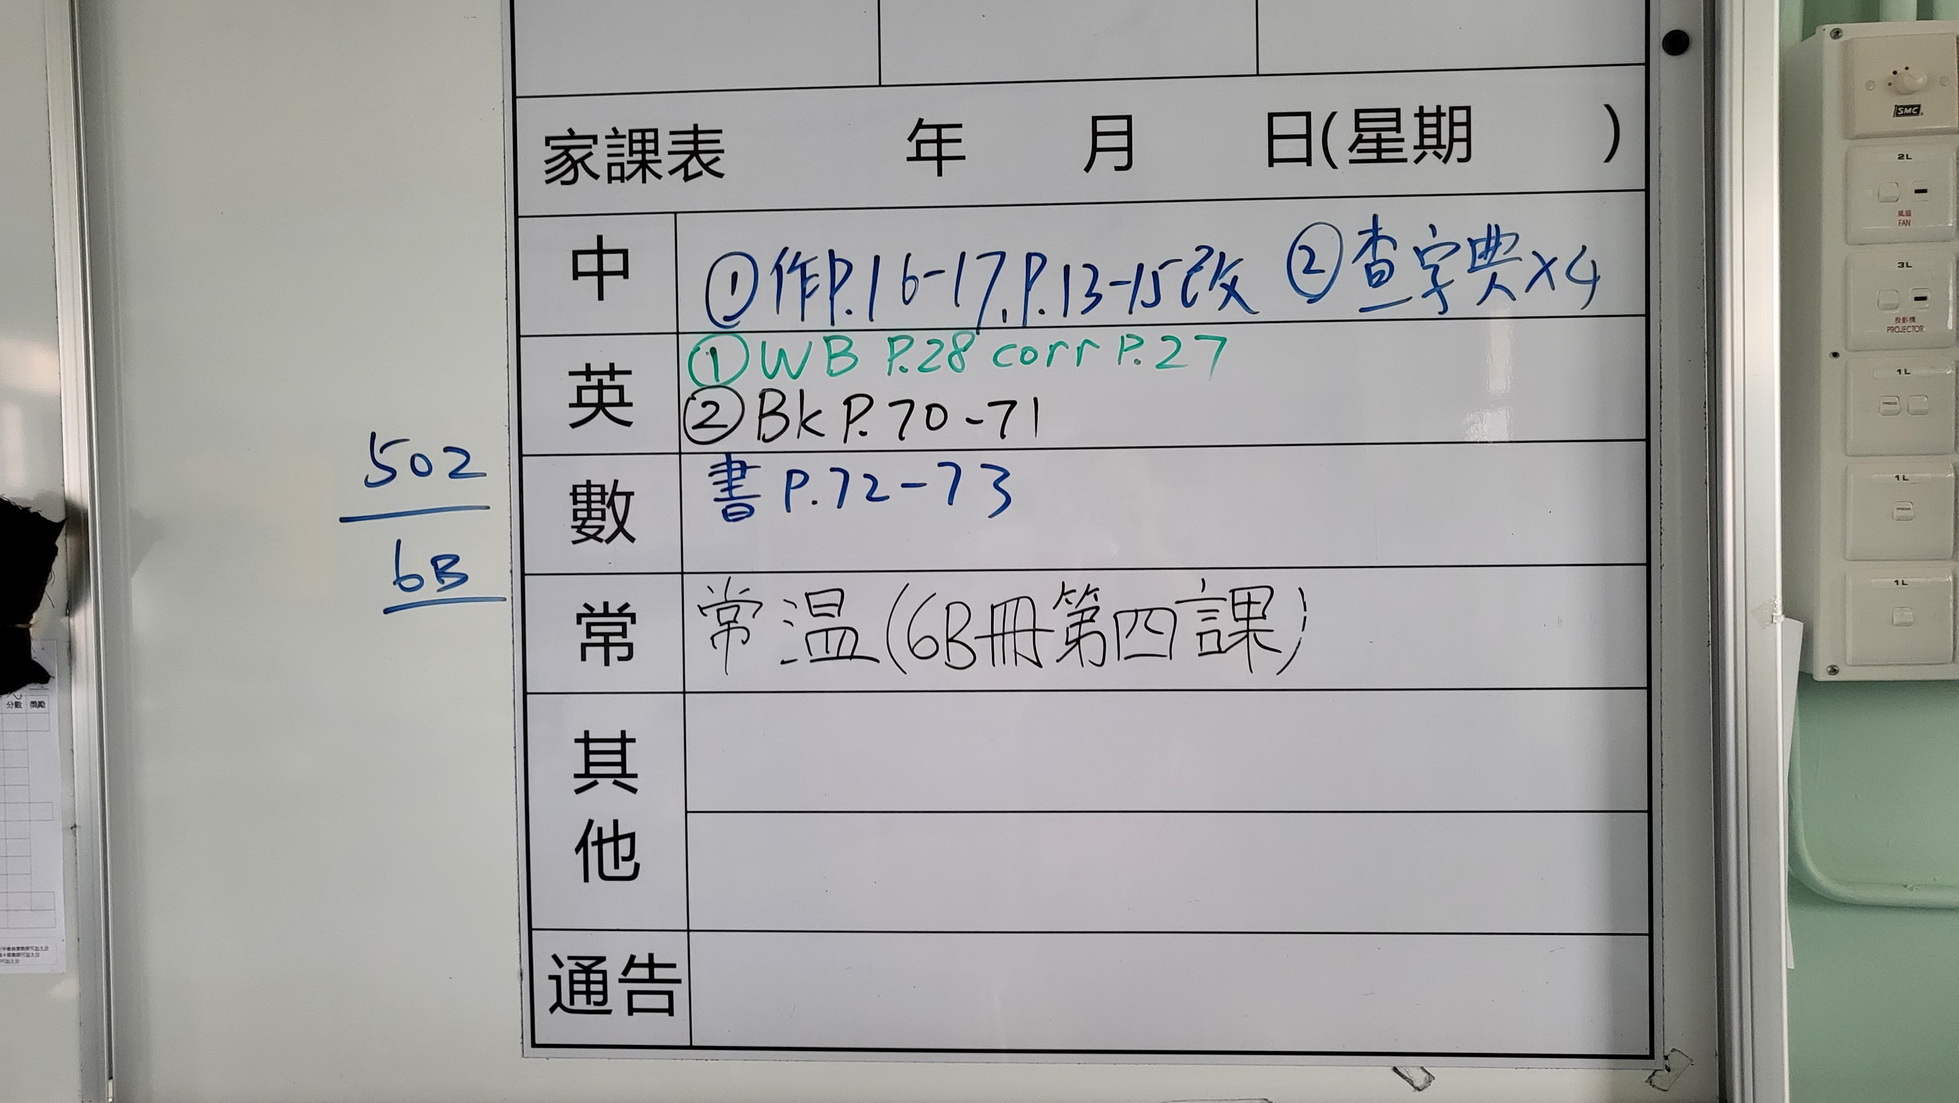 家課表 年 月 日(星期 )
中 ①作P.16-17,P.13-15改 ②查字典x4
英 ①WB P.28 corr P.27
②Bk P.70-71
數 書 P.72-73
常 常温(6B冊第四課)
其他
通告
502
6B
分數 獎勵
SMC
2L
風扇
FAN
3L
投影機
PROJECTOR
1L
1L
1L